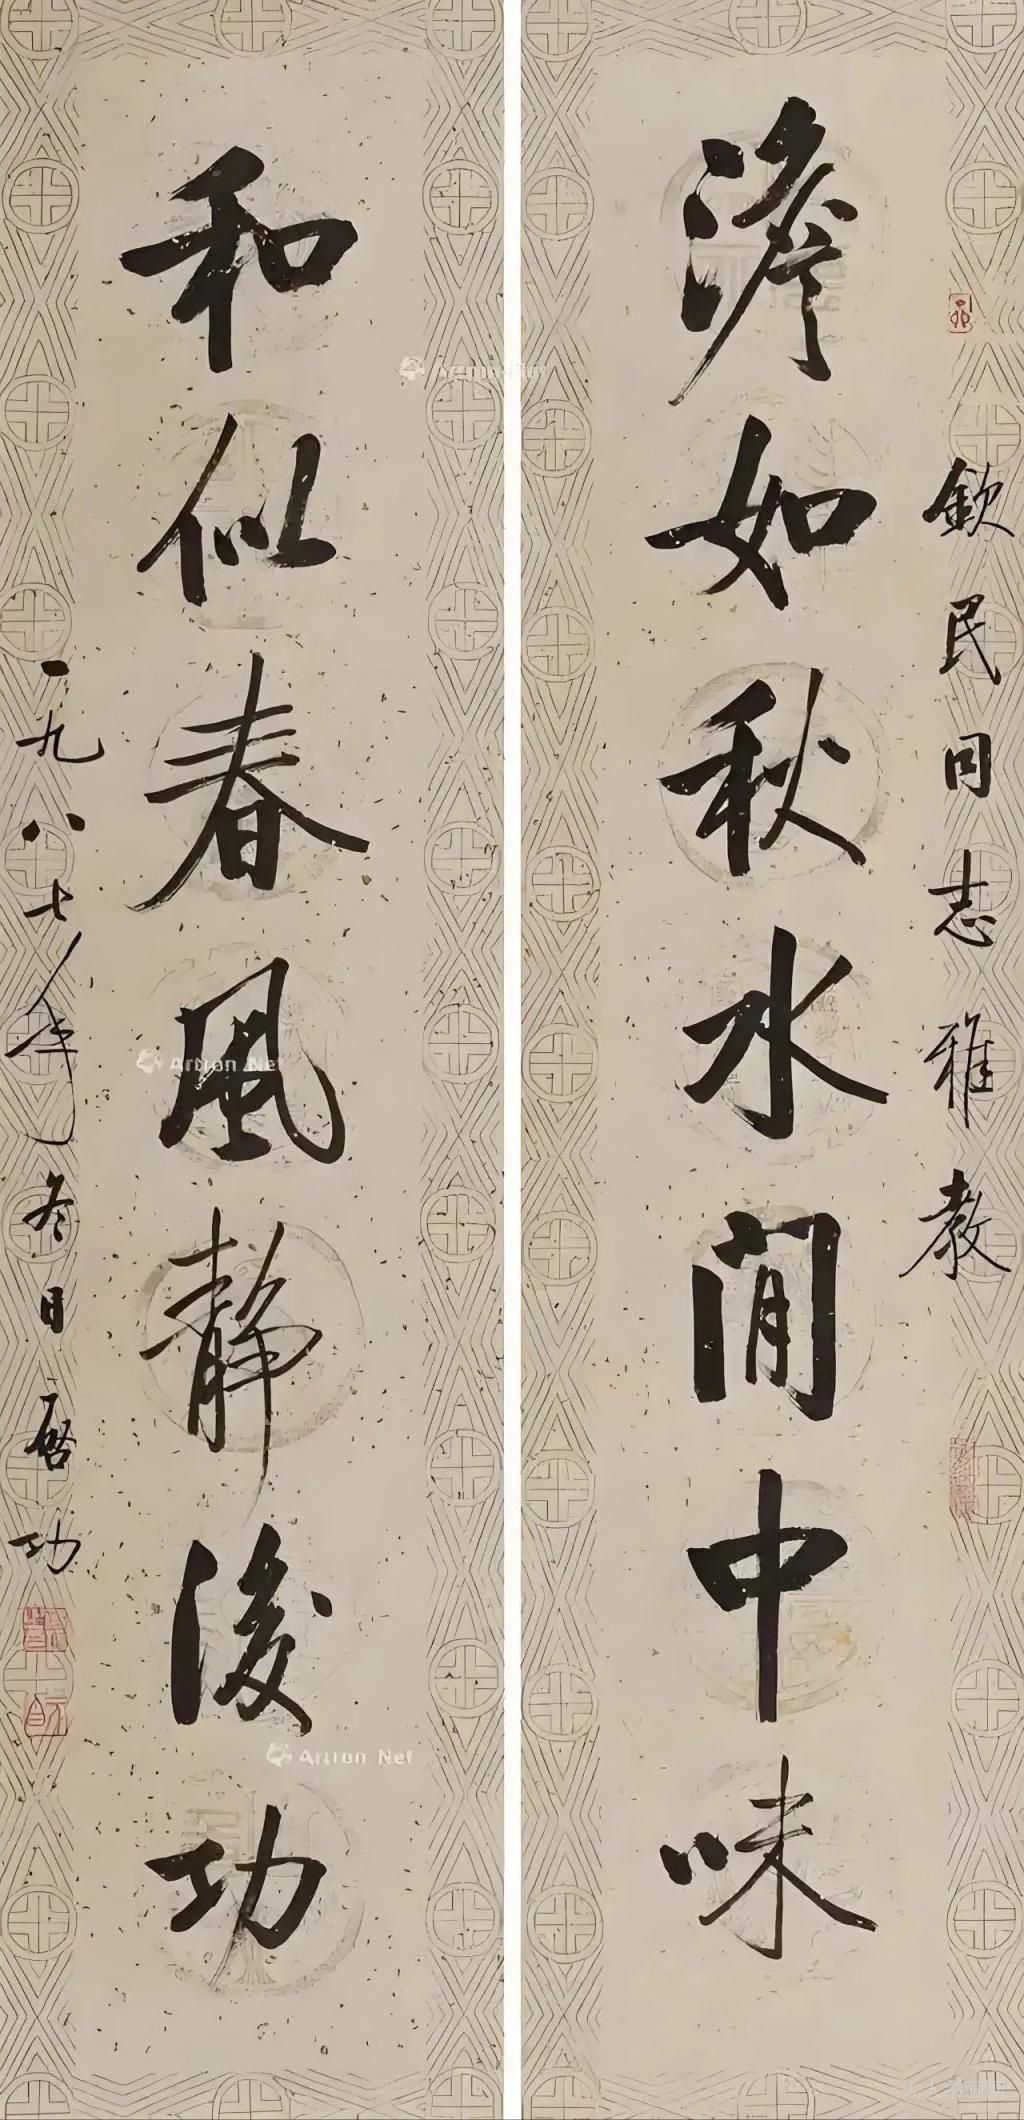 欽民同志雅教
澹如秋水閒中味
和似春風静後功
一九八七年冬日啓功
Artron.Net
Artron.Net
Artron.Net